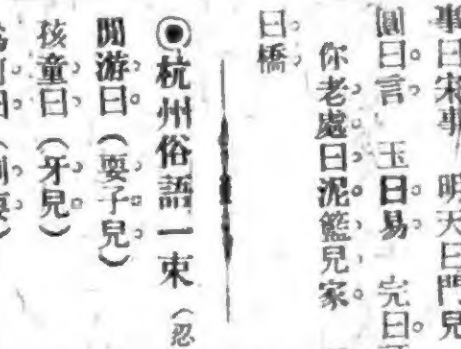 事曰宋事 明天曰門兒
圓曰言 玉曰易 完曰
你老處曰泥籃兒家
曰橋
◉杭州俗語一束(忍
閒游曰(耍子兒)
孩童曰(牙兒)